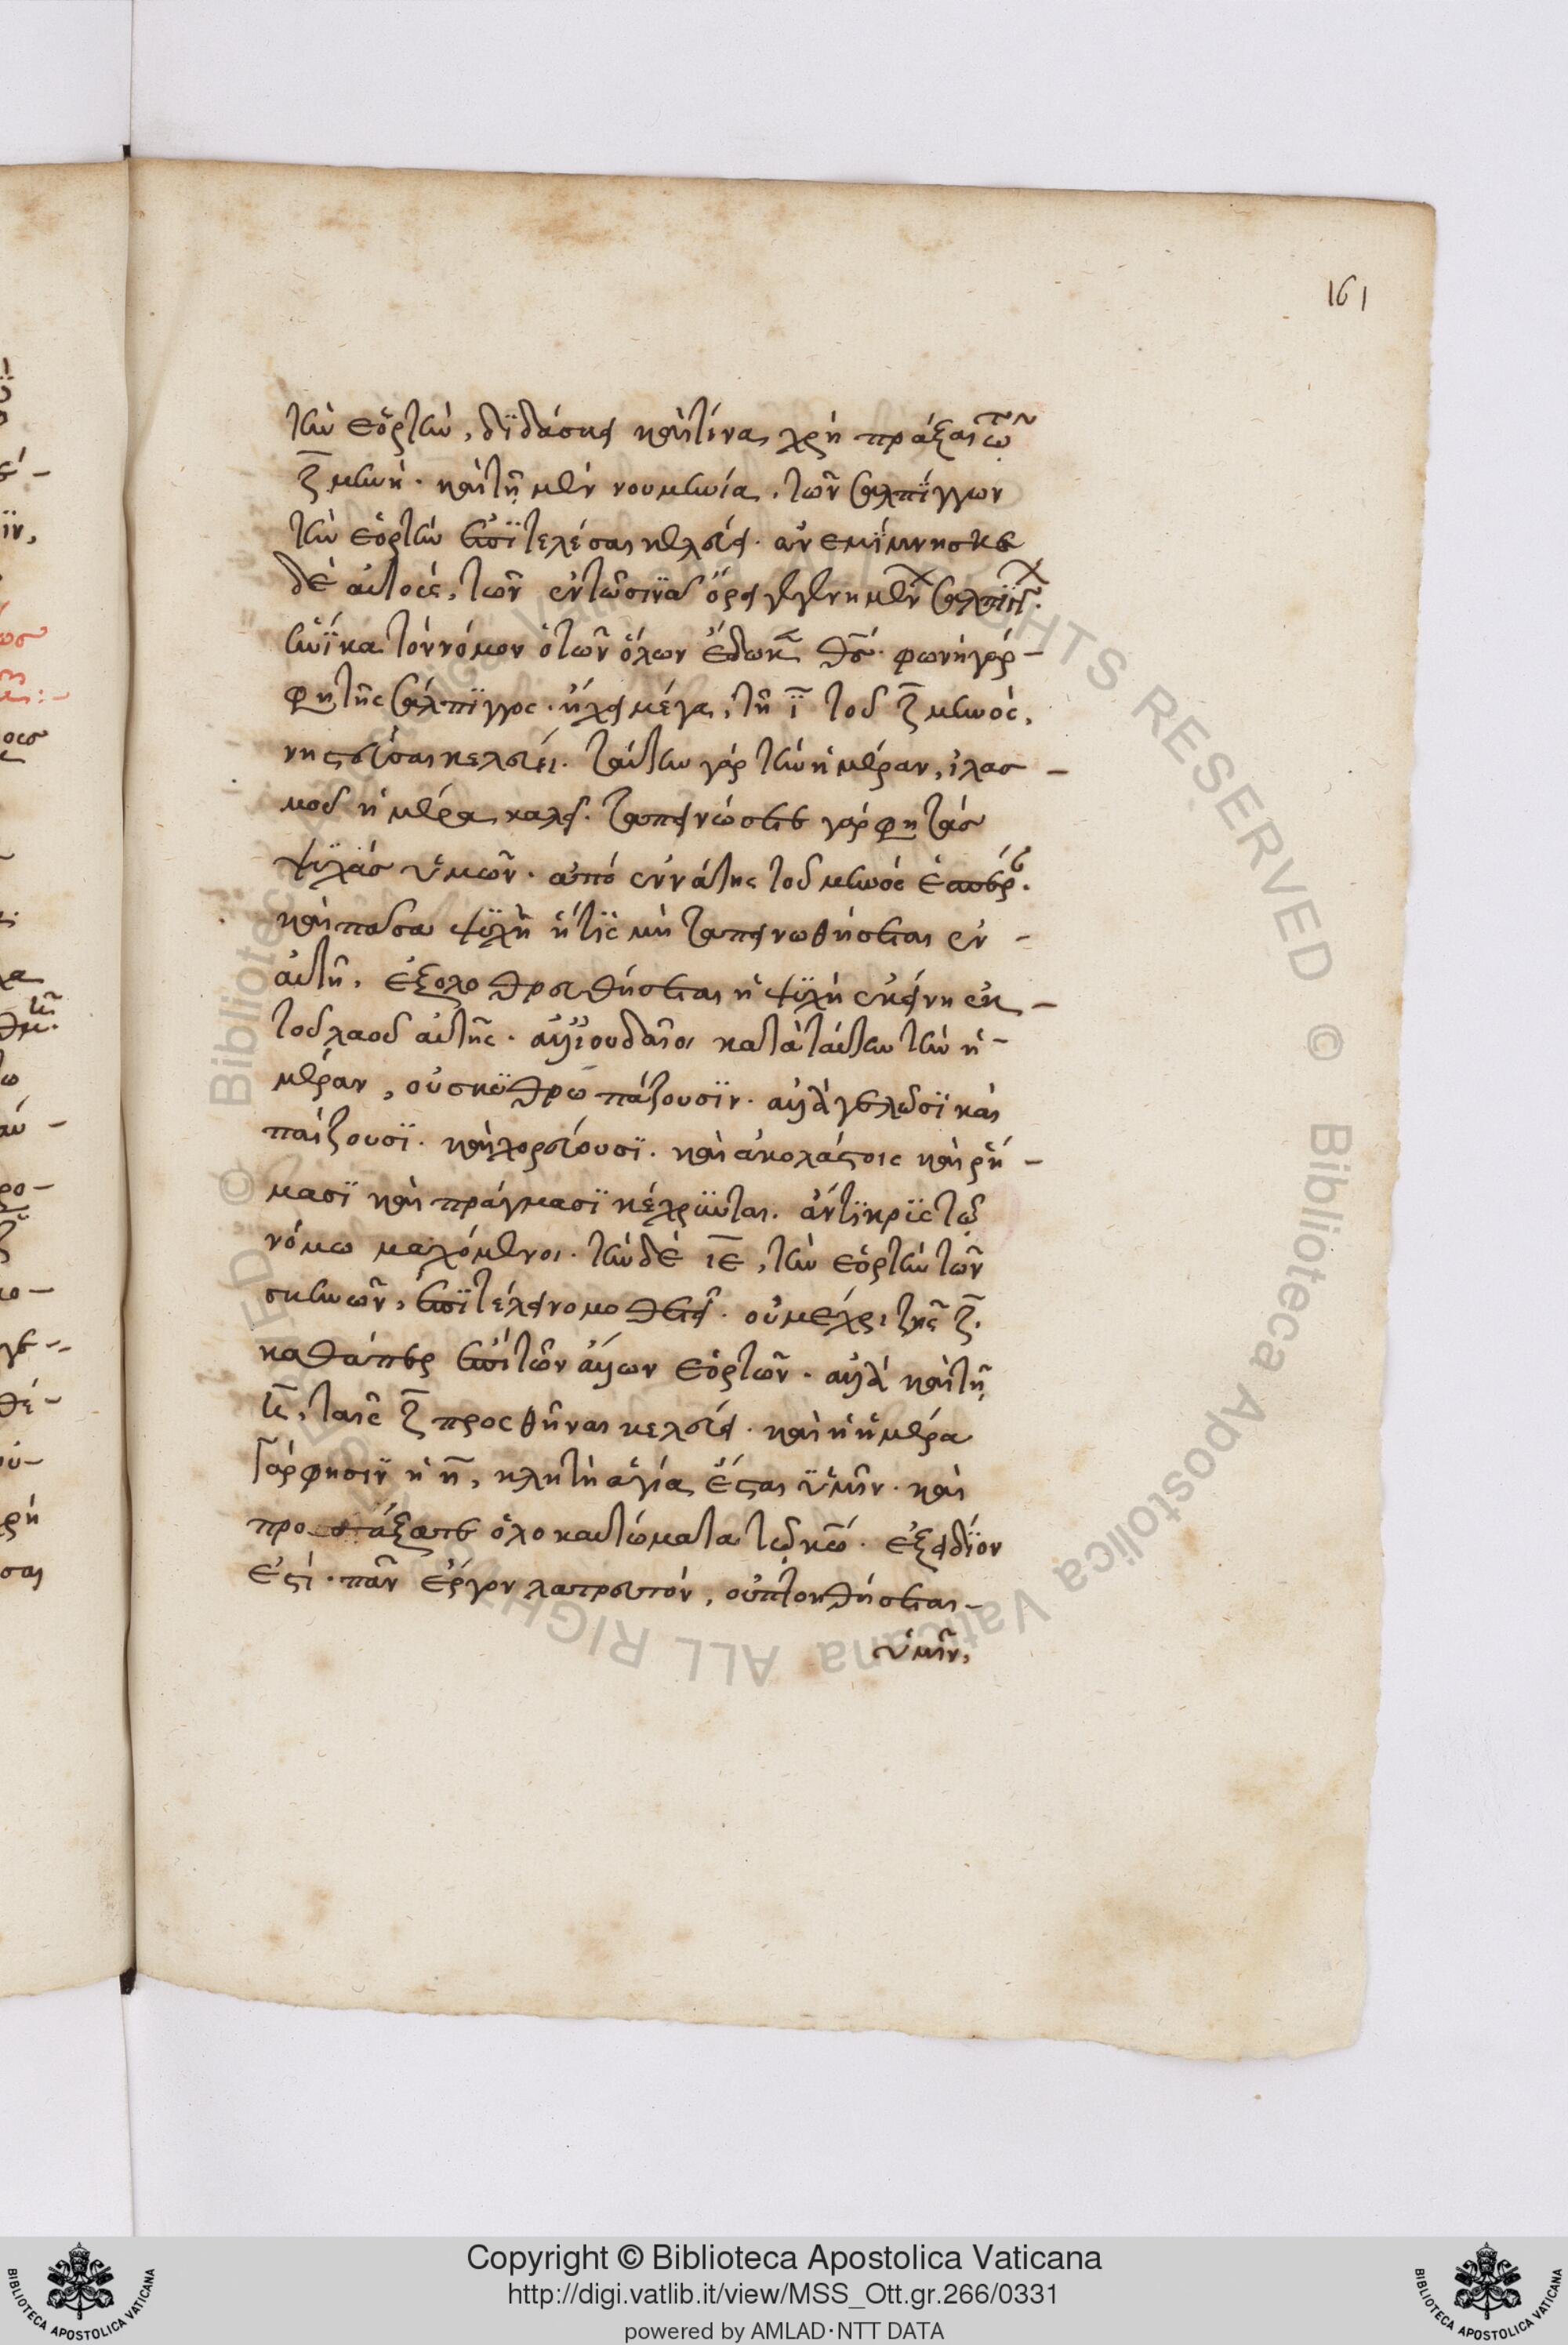 161
τὴν ἑορτὴν, διδάσκει καὶ τίνα χρὴ πράξαι τῷ
ζ̅ μηνὶ. καὶ τῇ μὲν νουμηνία, τῶν σαλπίγγων
τὴν ἑορτὴν ἐπιτελέσαι κελεύει. ἀνεμίμνησκε
δὲ αὐτοὺς, τῶν ἐν τῷ σινᾶ ὄρει γεγενημένων σαλπίγγων.
ἡνίκα τὸν νόμον ὁ τῶν ὅλων ἔδωκε θς. φωνὴ γάρ
φη τῆς σάλπιγγος. ἤχει μέγα, τῇ ι̅ τοῦ ζ̅ μηνὸς,
νηστεῦσαι κελεύει. ταύτην γὰρ τὴν ἡμέραν, ἱλασ
μοῦ ἡμέρα καλεῖ. ταπεινώσετε γάρ φη τὰσ
ψυχὰσ ὑμῶν. ἀπὸ ἐννάτης τοῦ μηνὸς ἑσπέρας.
καὶ πᾶσα ψυχὴ ἥτις μὴ ταπεινωθήσεται ἐν
αὐτῇ, ἐξολοθρευθήσεται ἡ ψυχὴ ἐκείνη ἐκ
τοῦ λαοῦ αὐτῆς. ἀλλ' ἰουδαῖοι κατὰ ταύτην τὴν ἡ
μέραν, οὐ σκυθρωπάζουσιν. ἀλλὰ γελῶσι καὶ
παίζουσι. καὶ χορεύουσι. καὶ ἀκολάστοις καὶ ῥή
μασι καὶ πράγμασι κέχρηνται. ἄντικρις τῷ
νόμω μαχόμενοι. τὴν δὲ ιε̅, τὴν ἑορτὴν τῶν
σκηνῶν, ἐπιτελεῖν νομοθετεῖ. οὐ μέχρι τῆς ζ̅.
καθάπερ ἐπὶ τῶν ἄλλων ἑορτῶν. ἀλλὰ καὶ τὴν
η̅, ταῖς ζ̅ προσθῆναι κελεύει. καὶ ἡ ἡμέρα
γάρ φησιν ἡ η̅, κλητὴ ἁγία ἔσται ὑμῖν. καὶ
προσάξατε ὁλοκαυτώματα τῷ κω. ἐξόδιον
ἐστὶ. πᾶν ἔργον λατρευτόν, οὐ ποιηθήσεται
ὑμῖν,
Copyright © Biblioteca Apostolica Vaticana
http://digi.vatlib.it/view/MSS_Ott.gr.266/0331
powered by AMLAD·NTT DATA